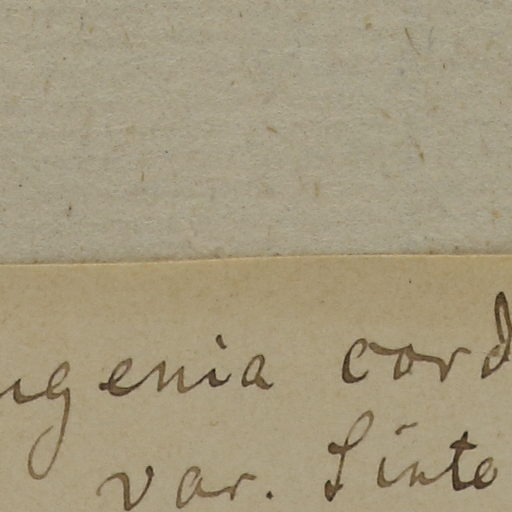 ugenia cord
var. Sinte